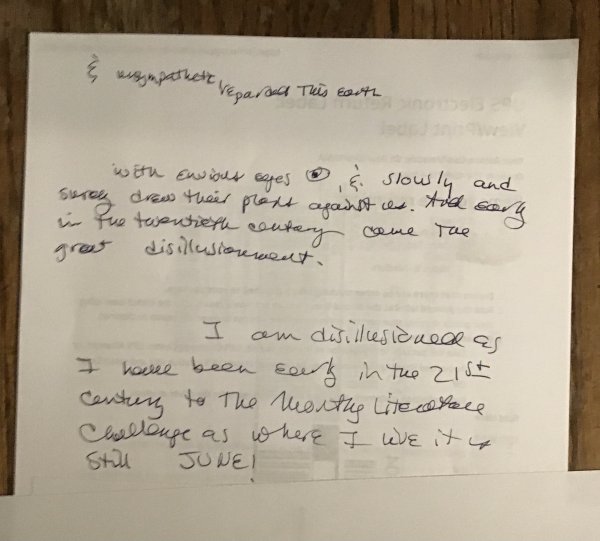 & unsympathetic, regarded This Earth
with envious eyes, & slowly and
surely drew their plans against us. And early
in the twentieth century came The
great disillusionment.
I am disillusioned as
I have been early in the 21st
Century to The Monthly Literature
Challenge as where I live it is
still JUNE!
UPS Electronic Return Label:
View/Print Label